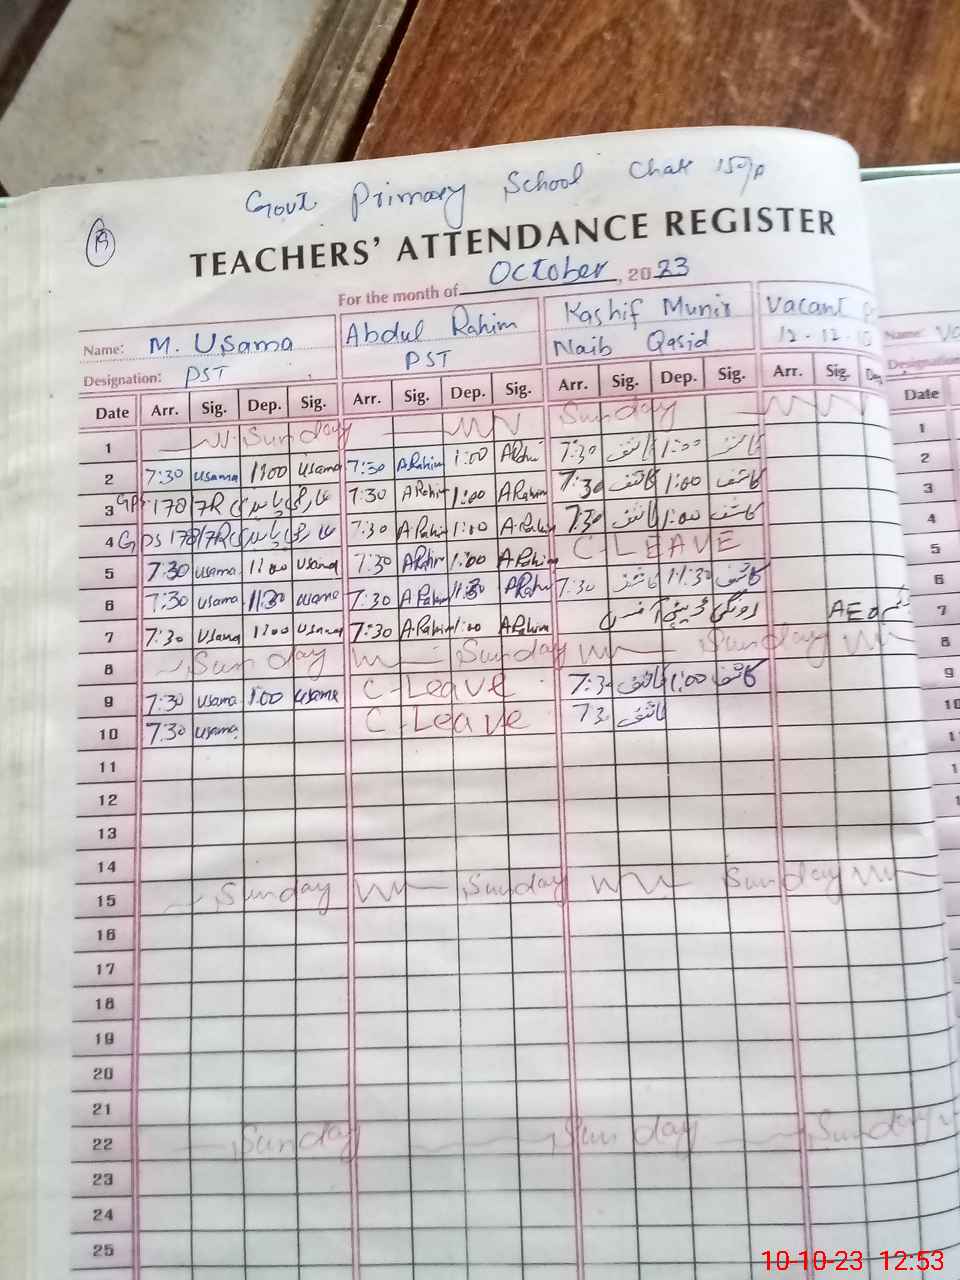 Govt. Primary School Chak
TEACHERS' ATTENDANCE REGISTER
For the month of October, 2023
Name: M. Usama Abdul Rahim Kashif Munir Vacant
Naib Qasid 12-12-
Designation: PST PST
Name:
Designation
Date Arr. Sig. Dep. Sig. Arr. Sig. Dep. Sig. Arr. Sig. Dep. Sig. Arr. Sig. Dep. Date
1 Sunday Sunday 1
2 7:30 usama 1:00 usama 7:30 A Rahim 1:00 7:30 کاشف 1:00 کاشف 2
3 178/7R 7:30 A Rahim 1:00 A Rahim 7:30 کاشف 1:00 کاشف 3
4 GPS 178/7R 7:30 A.Rahim 1:00 A.Rahim 7:30 کاشف 1:00 کاشف 4
5 7:30 usama 1:00 usama 7:30 A Rahim 1:00 A Rahim C-LEAVE 5
6 7:30 usama 11:30 usama 7:30 A.Rahim 11:30 A Rahim 7:30 کاشف 11:30 کاشف 6
7 7:30 usama 1:00 usama 7:30 A.Rahim 1:00 A.Rahim AEO 7
8 Sunday Sunday Sunday 8
9 7:30 usama 1:00 usama C-Leave 7:3 کاشف 1:00 کاشف 9
10 7:30 usama C-Leave 7:3 کاشف 10
11
12
13
14
15 Sunday Sunday Sunday
16
17
18
19
20
21
22 Sunday Sunday Sunday
23
24
25
10-10-23 12:53